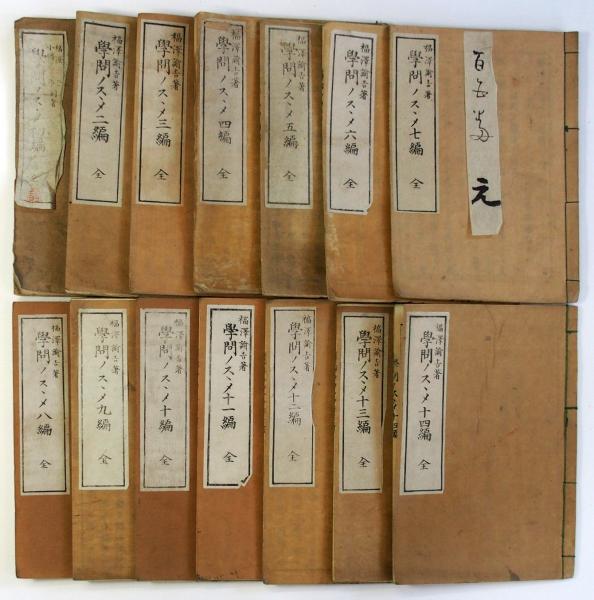 福澤諭吉著
學問ノスヽメ二編 全
福澤諭吉著
學問ノスヽメ三編 全
福澤諭吉著
學問ノスヽメ四編 全
福澤諭吉著
學問ノスヽメ五編 全
福澤諭吉著
學問ノスヽメ六編 全
福澤諭吉著
學問ノスヽメ七編 全
元
福澤諭吉著
學問ノスヽメ八編 全
福澤諭吉著
學問ノスヽメ九編 全
福澤諭吉著
學問ノスヽメ十編 全
福澤諭吉著
學問ノスヽメ十一編 全
福澤諭吉著
學問ノスヽメ十二編 全
福澤諭吉著
學問ノスヽメ十三編 全
福澤諭吉著
學問ノスヽメ十四編 全